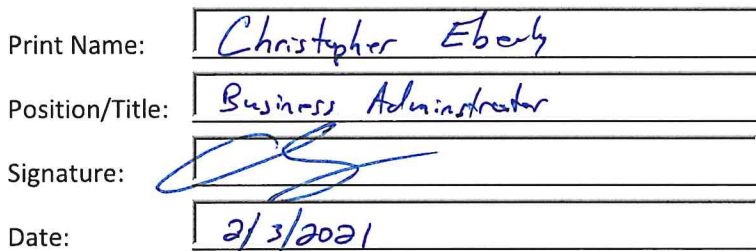 Print Name: Christopher Eberly
Position/Title: Business Adminstrator
Signature:
Date: 2/3/2021